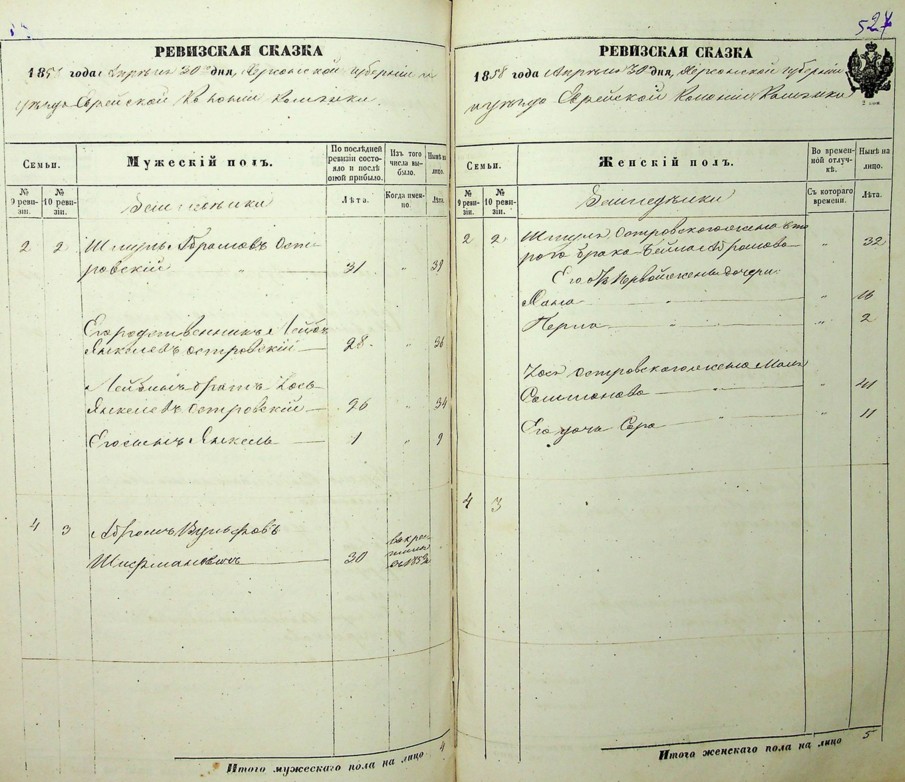 527
РЕВИЗСКАЯ СКАЗКА
1858 года Апрѣля 30 дня, Херсонской губерніи и
уѣзда Еврейской Колоніи
Семьи.
Мужескій полъ.
По послѣдней ревизіи состояло и послѣ оной прибыло.
Изъ того числа выбыло.
Нынѣ на лицо.
№ 9 ревизіи.
№ 10 ревизіи.
Лѣта.
Когда именно.
Лѣта.
2 2 Шмуль Абрамовъ Ост-
ровскій 31 " 39
Его родственникъ Лейба
Янкелевъ Островскій 28 " 36
Лейбы братъ Іось
Янкелевъ Островскій 26 " 34
Его сынъ Янкель 1 " 9
4 3 Абрамъ Вульфовъ
30
Итого мужескаго пола на лицо 4
РЕВИЗСКАЯ СКАЗКА
1858 года Апрѣля 30 дня, Херсонской губерніи
и уѣзда Еврейской Колоніи
Семьи.
Женскій полъ.
Во временной отлучкѣ.
Нынѣ на лицо.
№ 9 ревизіи.
№ 10 ревизіи.
Съ котораго времени.
Лѣта.
2 2 Шмуля Островскаго жена вто-
рого брака Бейла Абрамова " 32
Его отъ первой жены дочери:
" 16
Перла " 2
Іося Островскаго жена
" 41
Его дочь Сора " 11
4 3
Итого женскаго пола на лицо 5